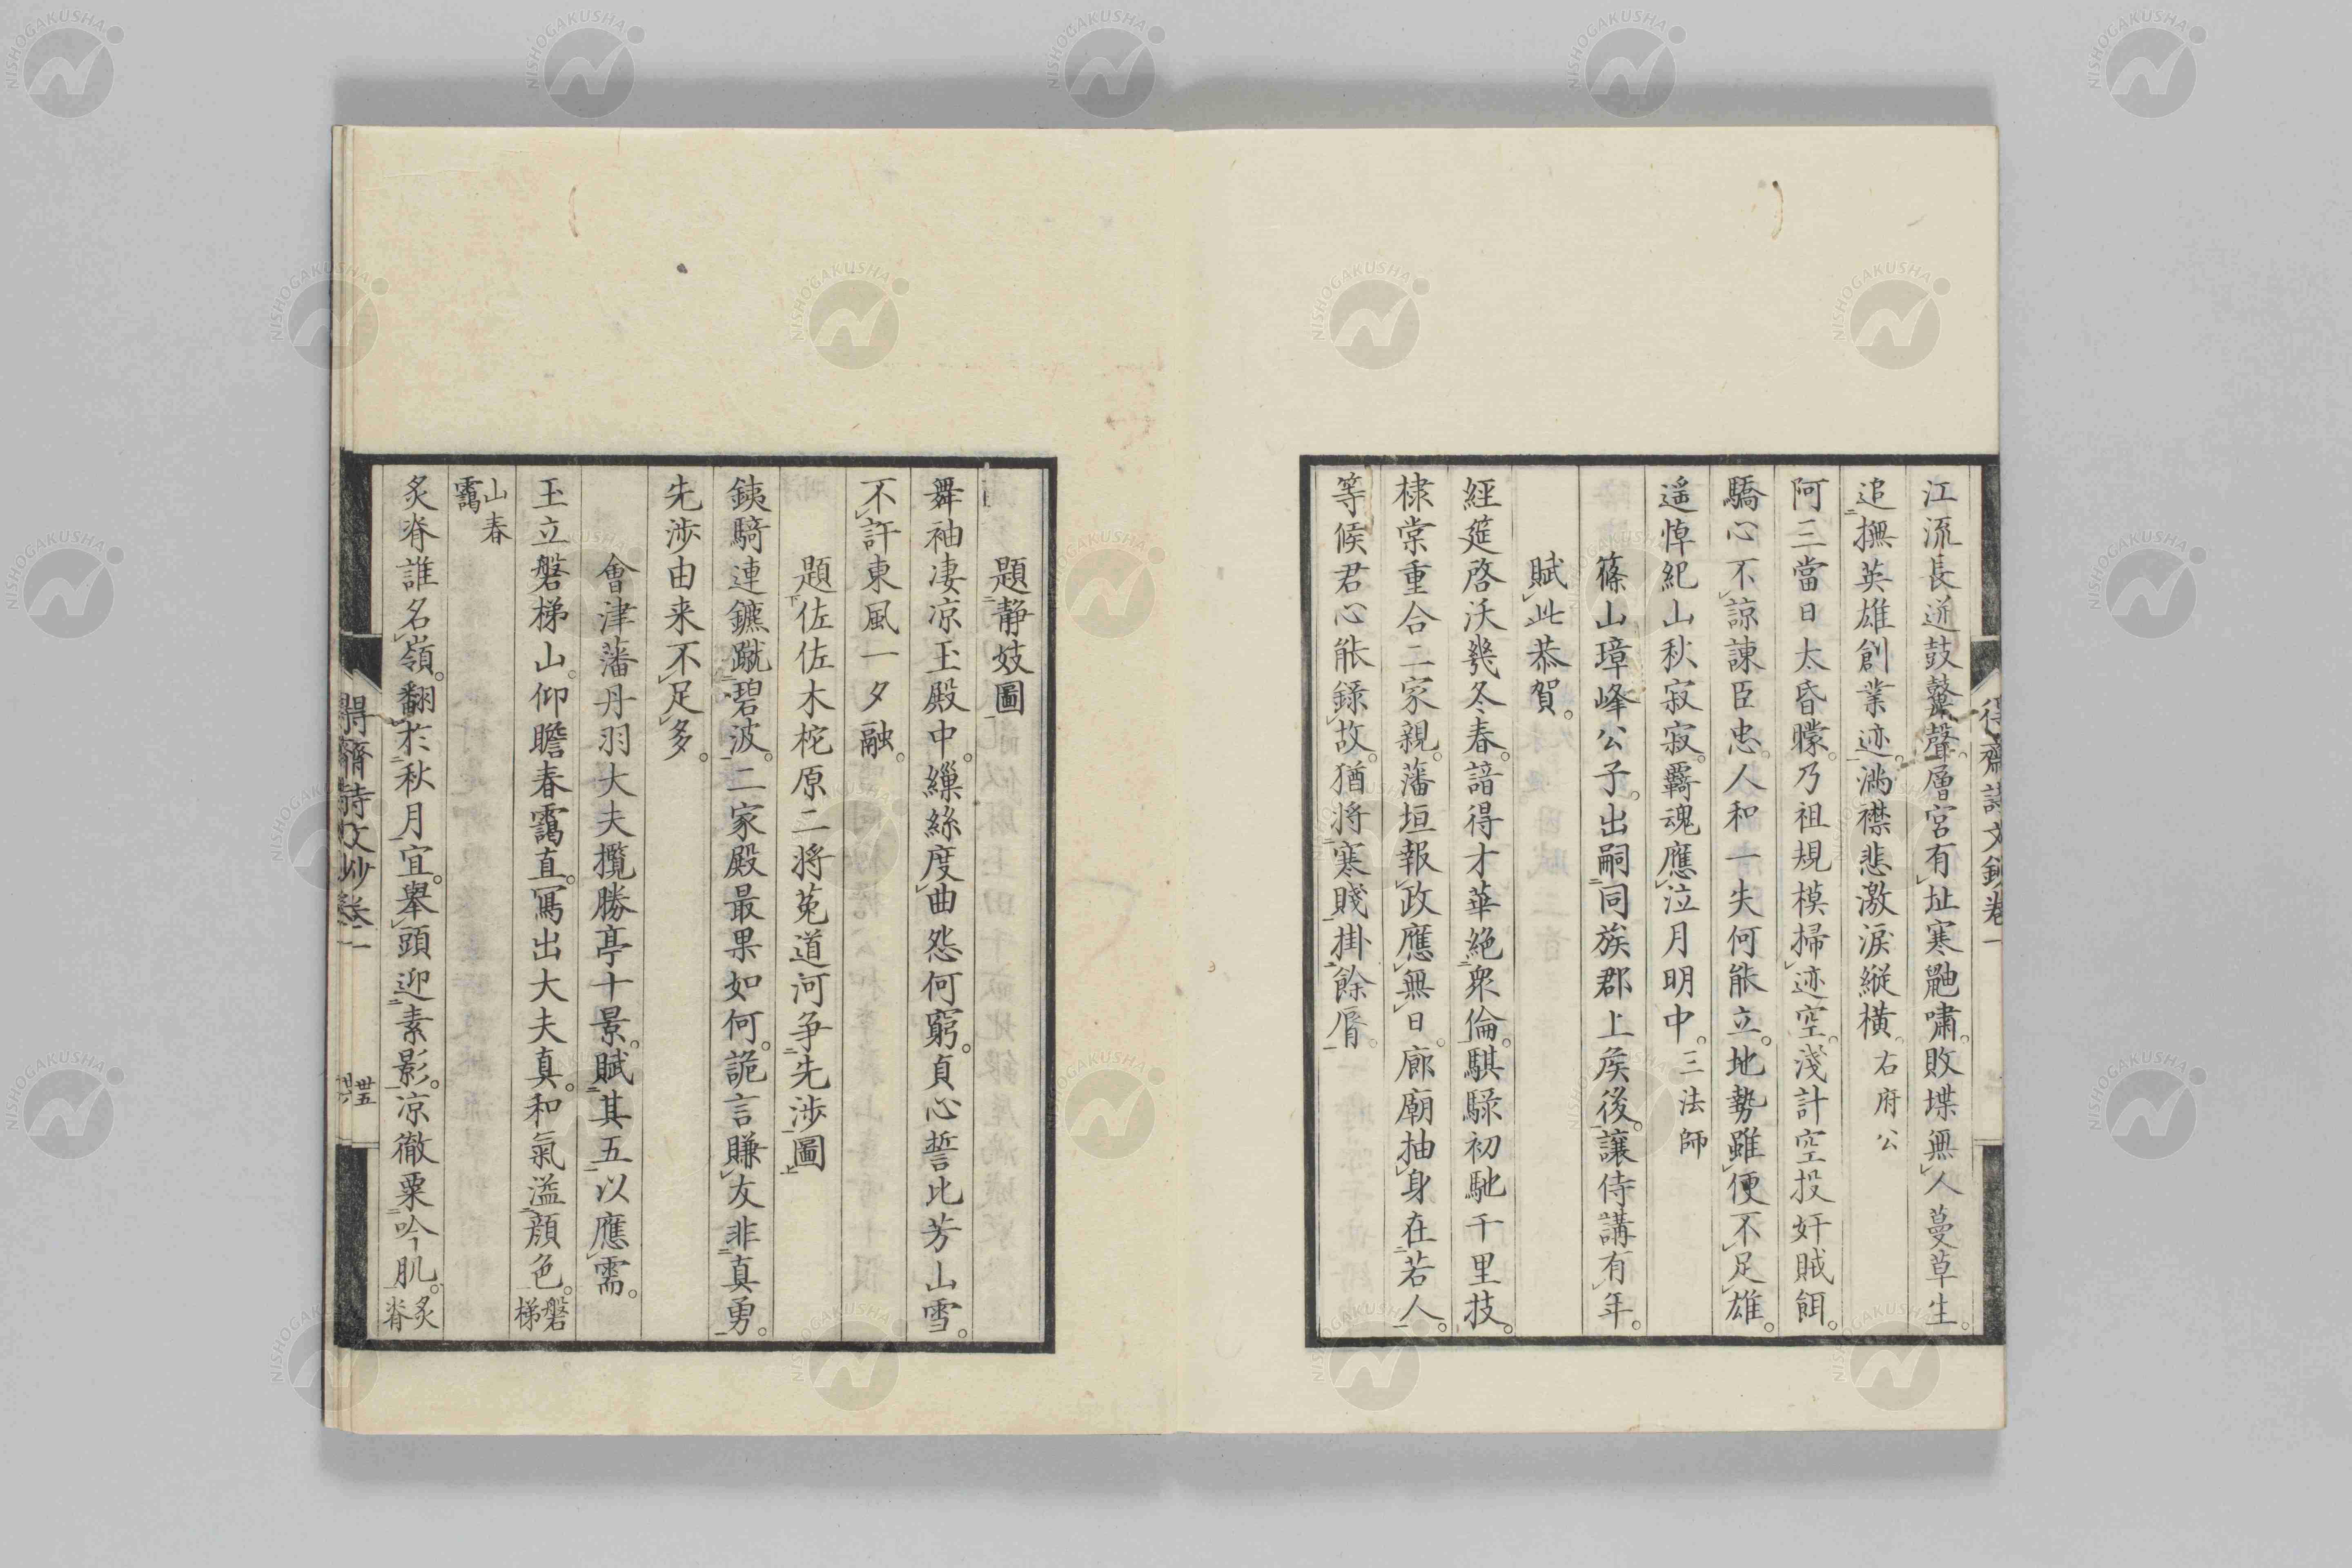 江流長迸鼓鼕聲。層宮有址寒鼬嘯。敗堞無人蔓草生。
追撫英雄創業迹。満襟悲激淚縦橫。右府公
阿三當日太昏矇。乃祖規模掃迹空。淺計空投奸賊餌。
驕心不諒諫臣忠。人和一失何能立。地勢雖便不足雄。
遥悼紀山秋寂寂。覇魂應泣月明中。三法師
篠山璋峰公子。出嗣同族郡上矦後。讓侍講有年。
賦此恭賀。
経筵啓沃幾冬春。諳得才華絶衆倫。騏騄初馳千里技。
棣棠重合二家親。藩垣報政應無日。廊廟抽身在若人。
等候君心能録故。猶將寒賤掛餘脣。
題静妓圖
舞袖凄凉玉殿中。繅絲度曲怨何窮。貞心誓比芳山雪。
不許東風一夕融。
題佐佐木柁原二将菟道河争先渉圖
鐵騎連鑣蹴碧波。二家殿最果如何。詭言賺友非真勇。
先渉由来不足多。
會津藩丹羽大夫攬勝亭十景。賦其五以應需。
玉立磐梯山。仰瞻春靄直。冩出大夫真。和氣溢顔色。磐梯
山春靄
炙脊誰名嶺。翻於秋月宜。舉頭迎素影。凉徹粟吟肌。炙脊
得齋詩文鈔卷一
卅五
NISHOGAKUSHA